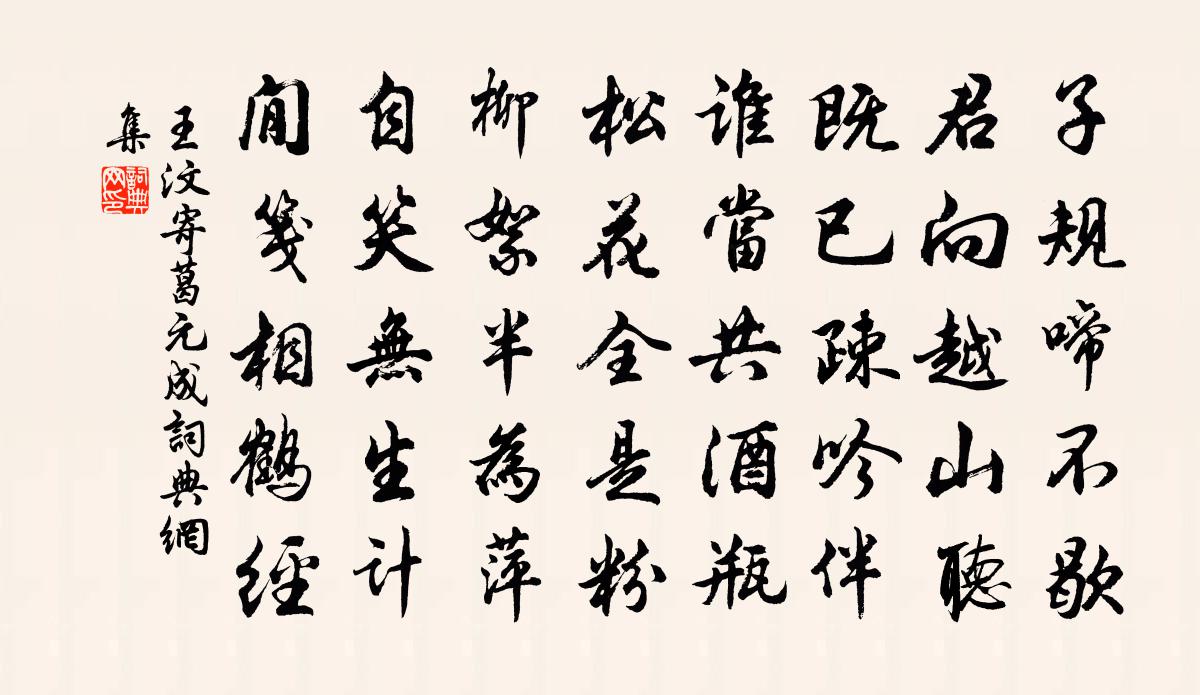 子規啼不歇
君向越山聽
既已疎吟伴
誰當共酒瓶
松花全是粉
柳絮半為萍
自笑無生計
閒箋相鶴經
王汶寄葛元成詞典網
集
詞典網印